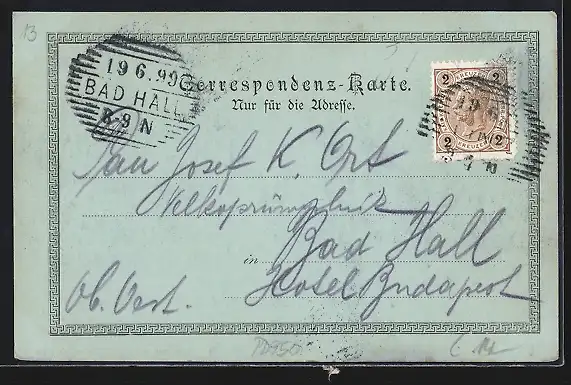 13
19 6.99
BAD HALL
8-9 N
Correspondenz-Karte.
Nur für die Adresse.
2 KREUZER 2
2 KREUZER 2
19 6
Josef K. Ort
in Bad Hall
Hotel Budapest
Ob. Oest.